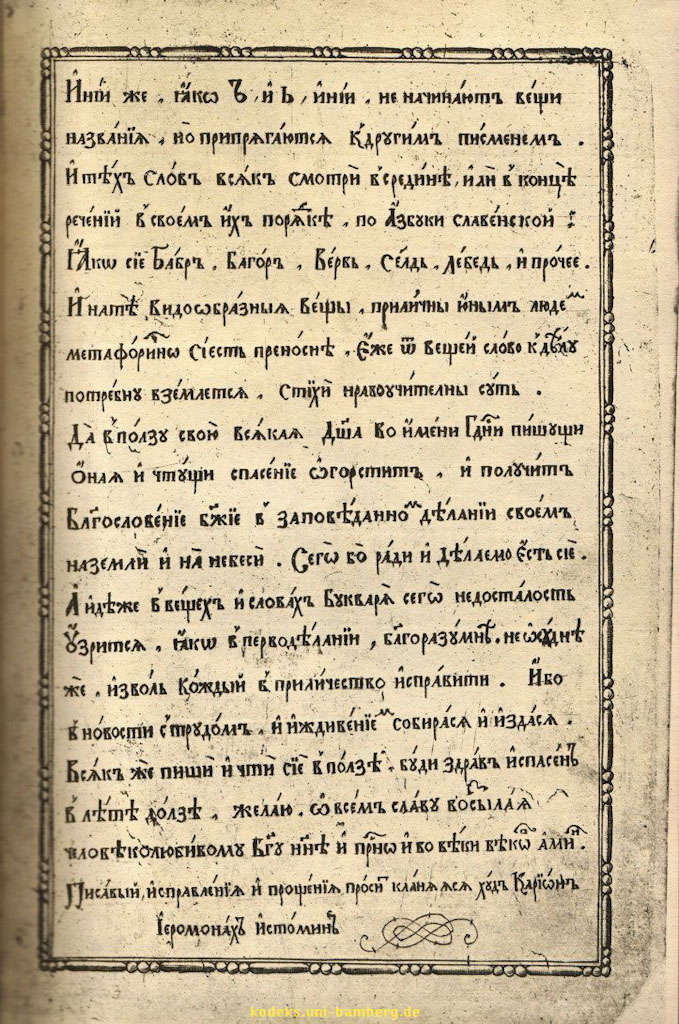 И҆ні́и же . ꙗ҆́кѡ Ъ , и҆ Ь , и҆ні́и . не начина́ютъ ве́щи
назва́нїѧ . но припрѧга́ются К̾дрꙋги́мъ пи́сменемъ .
И҆ тѣ́хъ Сло́въ всѧ́къ смотрѝ в̾среди́нѣ , и҆лѝ в̾ концѣ̀
рече́нїй в̾свое́мъ и҆́хъ порѧ́дкѣ . по А҆́збꙋки славе́нской :
Ꙗ҆́кѡ сїѐ Ба́бръ . Баго́ръ . Ве́рвь . Се́лдь . Ле́бедь . и҆ про́чее .
И҆ на тѣ̀ видоѡбра́зныѧ ве́щы . прили́чны и҆́нымъ людемъ
метафо́ринѡ сїе́сть прено́снѣ . Є҆́же ѿ веще́й сло́во к̾ дѣ́лꙋ
потре́бнꙋ взе́млетсѧ . Стїхѝ нравоꙋчи́телны сꙋ́ть .
Да̀ в̾ по́лзꙋ свою̀ всѧ́каѧ Дш҃а̀ во и҆́мени Гдⷭ҇ни пи́шꙋщи
Ѻ҆́наѧ и҆ чтꙋ́щи спасе́нїе ѡ҆горсти́тъ . и҆ полꙋ́читъ
Блг҃ослове́нїе бж҃їе в̾ заповѣ́данномъ дѣ́ланїи свое́мъ
на землѝ и҆ на̀ небесѝ . Сегѡ̀ бо̀ ра́ди и҆ дѣ́лаемо є҆́сть сїѐ .
А҆ и҆дѣ́же в̾ ве́щехъ и҆ слова́хъ Бꙋкварѧ̀ сегѡ̀ недоста́лость
Оу҆́зритсѧ . ꙗ҆́кѡ в̾ перводѣ́ланїи , бл҃горазꙋ́мнѣ . не ѡ҆сꙋ́днѣ
же . и҆зво́ль ко́ждый в̾ прили́чество и҆спра́вити . И҆́бо
в̾ но́вости с̾трꙋдо́мъ . и҆ и҆ждиве́нїемъ собира́сѧ и҆ и҆зда́сѧ .
Всѧ́къ же пишѝ и҆ чтѝ сїѐ в̾ по́лзѣ . бꙋ́ди здра́въ и҆ спасе́нъ
в̾ лѣ́тѣ до́лзѣ . жела́ю . ѡ҆ все́мъ сла́вꙋ возсыла́ѧ
человѣколюби́вомꙋ Бг҃ꙋ нн҃ѣ и҆ прⷭ҇нѡ и҆ во вѣ́ки вѣкѡ́въ а҆ми́нь .
Писа́вый , и҆справле́нїѧ и҆ проще́нїѧ , про́ситъ кла́нѧѧсѧ хꙋ́дъ Карїѡ́нъ
Іеромона́хъ И҆сто́минъ
kodeks.uni-bamberg.de